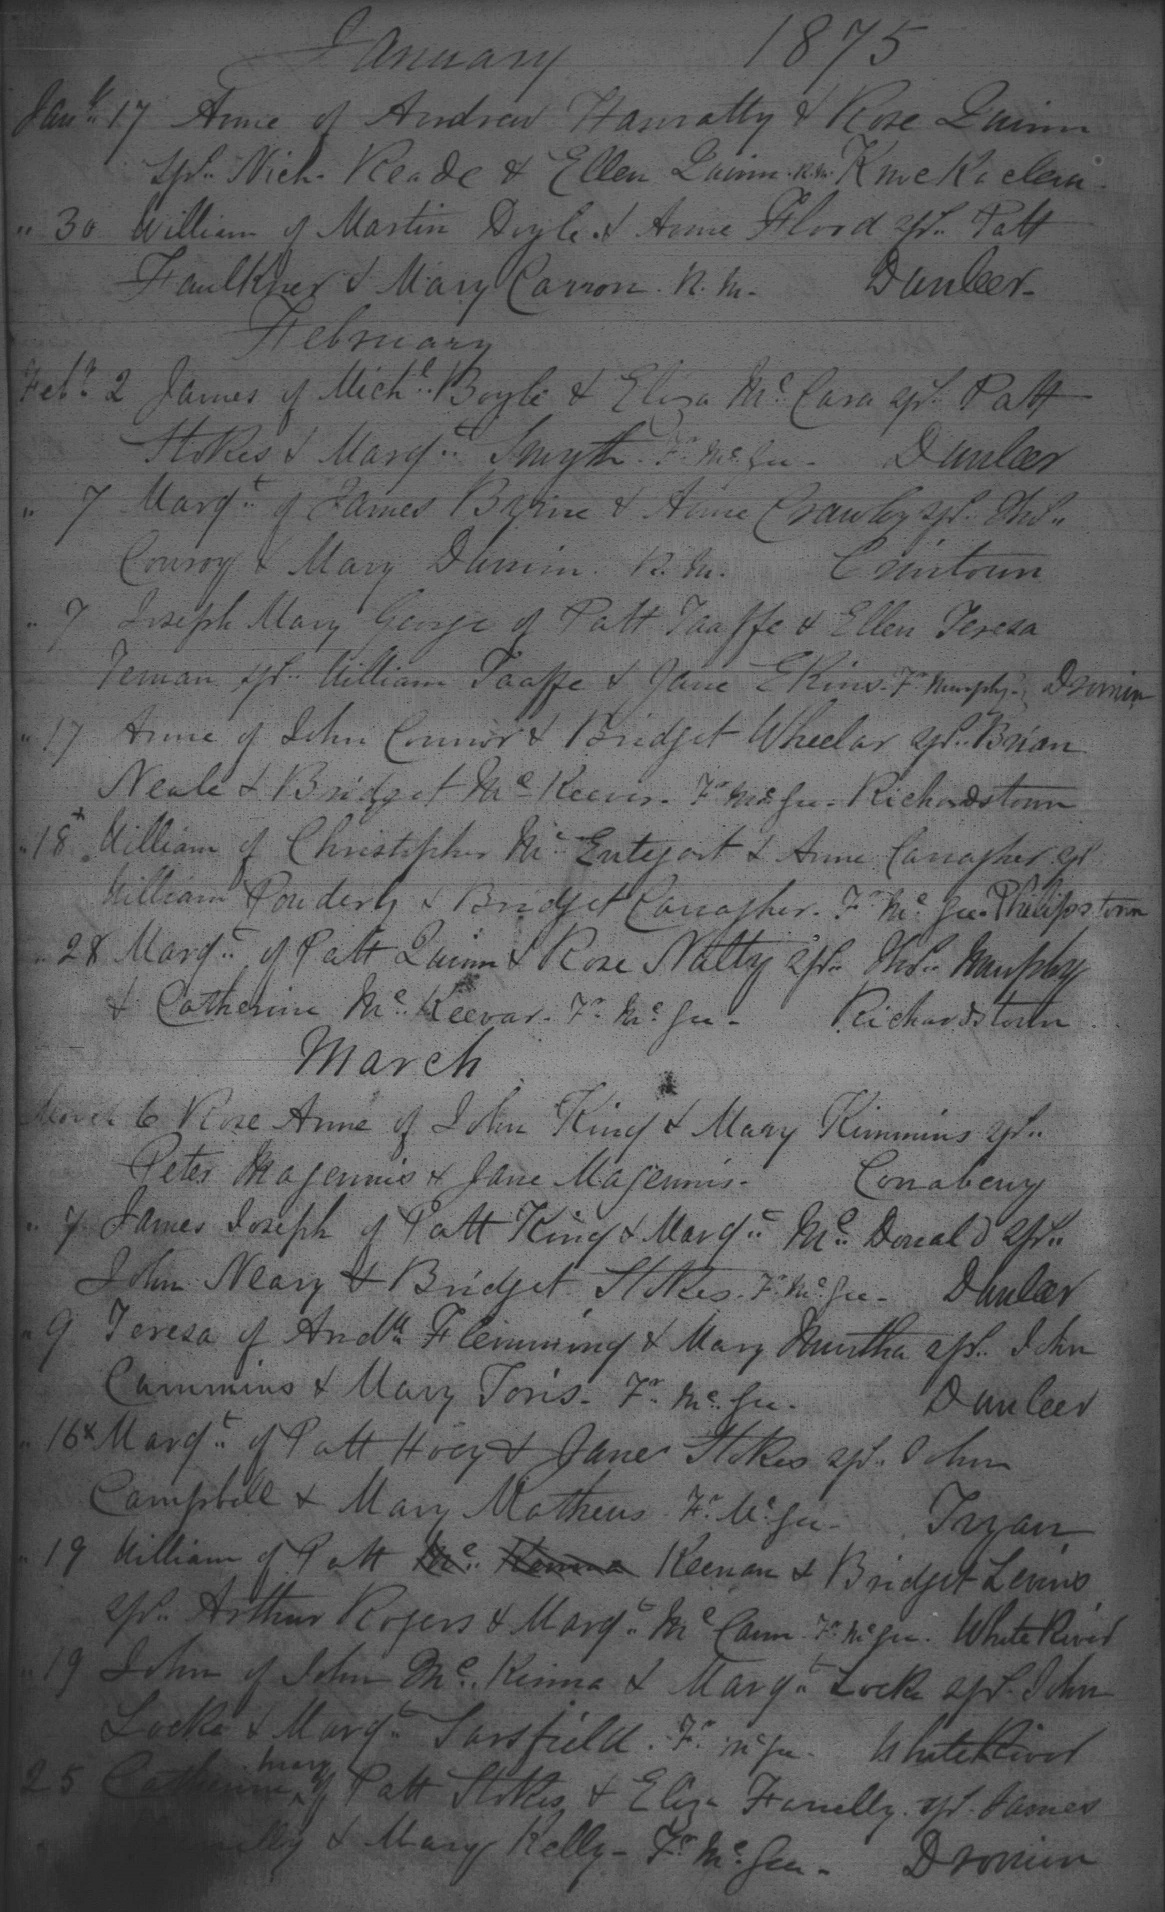 January 1875
Jany 17 Anne of Andrew Hanratty & Rose Quinn
spr. Nich. Reade & Ellen Quinn. R.M. Knockaclera
" 30 William of Martin Doyle & Anne Flood spr. Patt
Faulkner & Mary Carron. R. M. Dunleer
February
Feby 2 James of Michl. Boyle & Eliza Mc Cara spr. Patt
Stokes & Margt. Smyth. Fr. Mc. Gee - Dunleer
" 7 Margt. of James Byrne & Anne Crawley spr. Thos.
Conroy & Mary Dunin. R. M. Crintown
" 7 Joseph Mary George of Patt Taaffe & Ellen Teresa
Ternan spr. William Taaffe & Jane Ekins. Fr. Murphy. Dromin
" 17 Anne of John Connor & Bridget Wheelar spr. Brian
Neale & Bridget Mc Keever. Fr. Mc. Gee - Richardstown
" 18 x William of Christopher Mc Entegart & Anne Carragher spr
William Pouderly & Bridget Carragher. Fr. Mc. Gee - Philipstown
" 28 Margt. of Patt Quinn & Rose Natty spr. Thos. Murphy
& Catherine Mc. Keevar. Fr. Mc. Gee - Richardstown
March
March 6 Rose Anne of John King & Mary Kimmins spr.
Peter Magennis & Jane Magennis - Conabeny
" 7 James Joseph of Patt King & Margt. Mc. Donald spr.
John Neary & Bridget Stokes. Fr. Mc. Gee - Dunleer
" 9 Teresa of Andw. Flemming & Mary Murtha spr. John
Cammins & Mary Toris. Fr. Mc. Gee - Dunleer
" 16 x Margt. of Patt Hoey & Jane Stokes spr. John
Campbell & Mary Mathews. Fr. Mc. Gee - Tryan
" 19 William of Patt Mc. Kenna Keenan & Bridget Levins
spr. Arthur Rogers & Margt. Mc Cann. Fr. Mc. Gee. White River
" 19 John of John Mc. Kenna & Margt. Locke spr. John
Locke & Margt. Sarsfield. Fr. Mc. Gee - White River
25 Catherine Mary of Patt Stokes & Eliza Fanelly spr. James
& Mary Kelly - Fr. Mc. Gee - Dromin